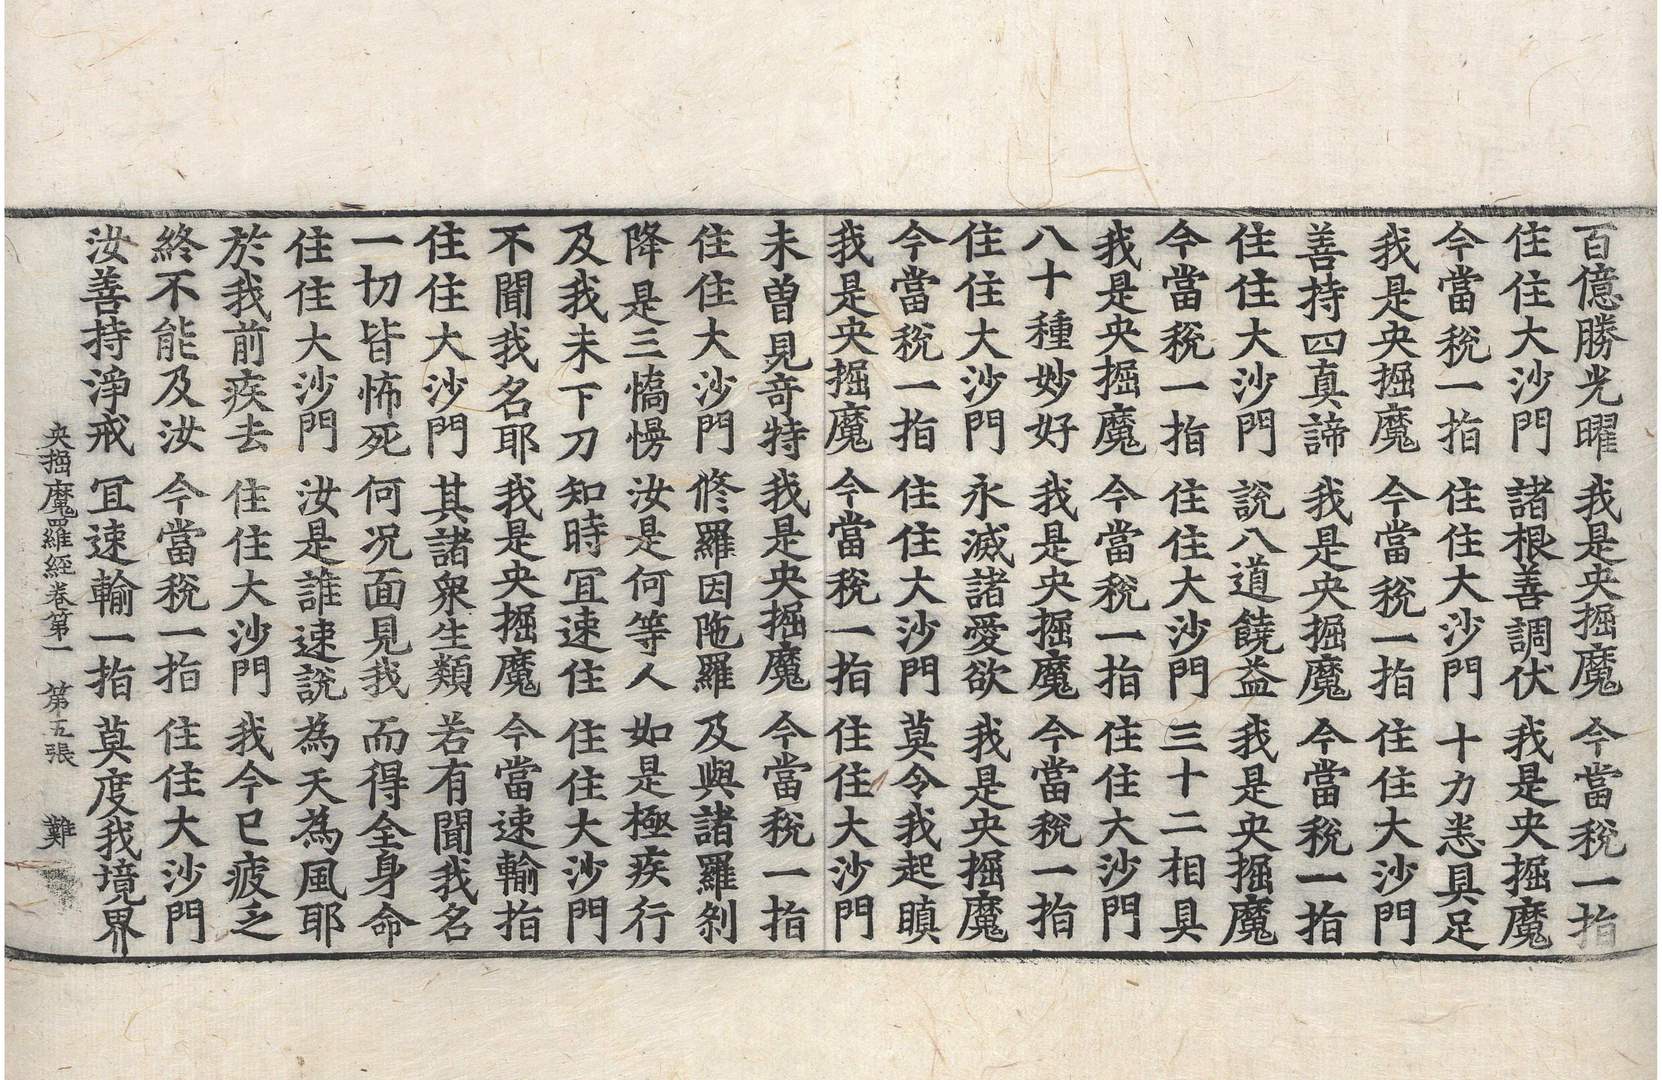 百億勝光曜 我是央掘魔 今當稅一指
住住大沙門 諸根善調伏 我是央掘魔
今當稅一指 住住大沙門 十力悉具足
我是央掘魔 今當稅一指 住住大沙門
善持四真諦 我是央掘魔 今當稅一指
住住大沙門 說八道饒益 我是央掘魔
今當稅一指 住住大沙門 三十二相具
我是央掘魔 今當稅一指 住住大沙門
八十種妙好 我是央掘魔 今當稅一指
住住大沙門 永滅諸愛欲 我是央掘魔
今當稅一指 住住大沙門 莫令我起瞋
我是央掘魔 今當稅一指 住住大沙門
未曾見奇特 我是央掘魔 今當稅一指
住住大沙門 脩羅因陁羅 及與諸羅剎
降是三憍慢 汝是何等人 如是極疾行
及我未下刀 知時冝速住 住住大沙門
不聞我名耶 我是央掘魔 今當速輸指
住住大沙門 其諸衆生類 若有聞我名
一切皆怖死 何况面見我 而得全身命
住住大沙門 汝是誰速說 為天為風耶
於我前疾去 住住大沙門 我今已疲乏
終不能及汝 今當稅一指 住住大沙門
汝善持淨戒 冝速輸一指 莫度我境界
央掘魔羅經卷第一 第五張 難